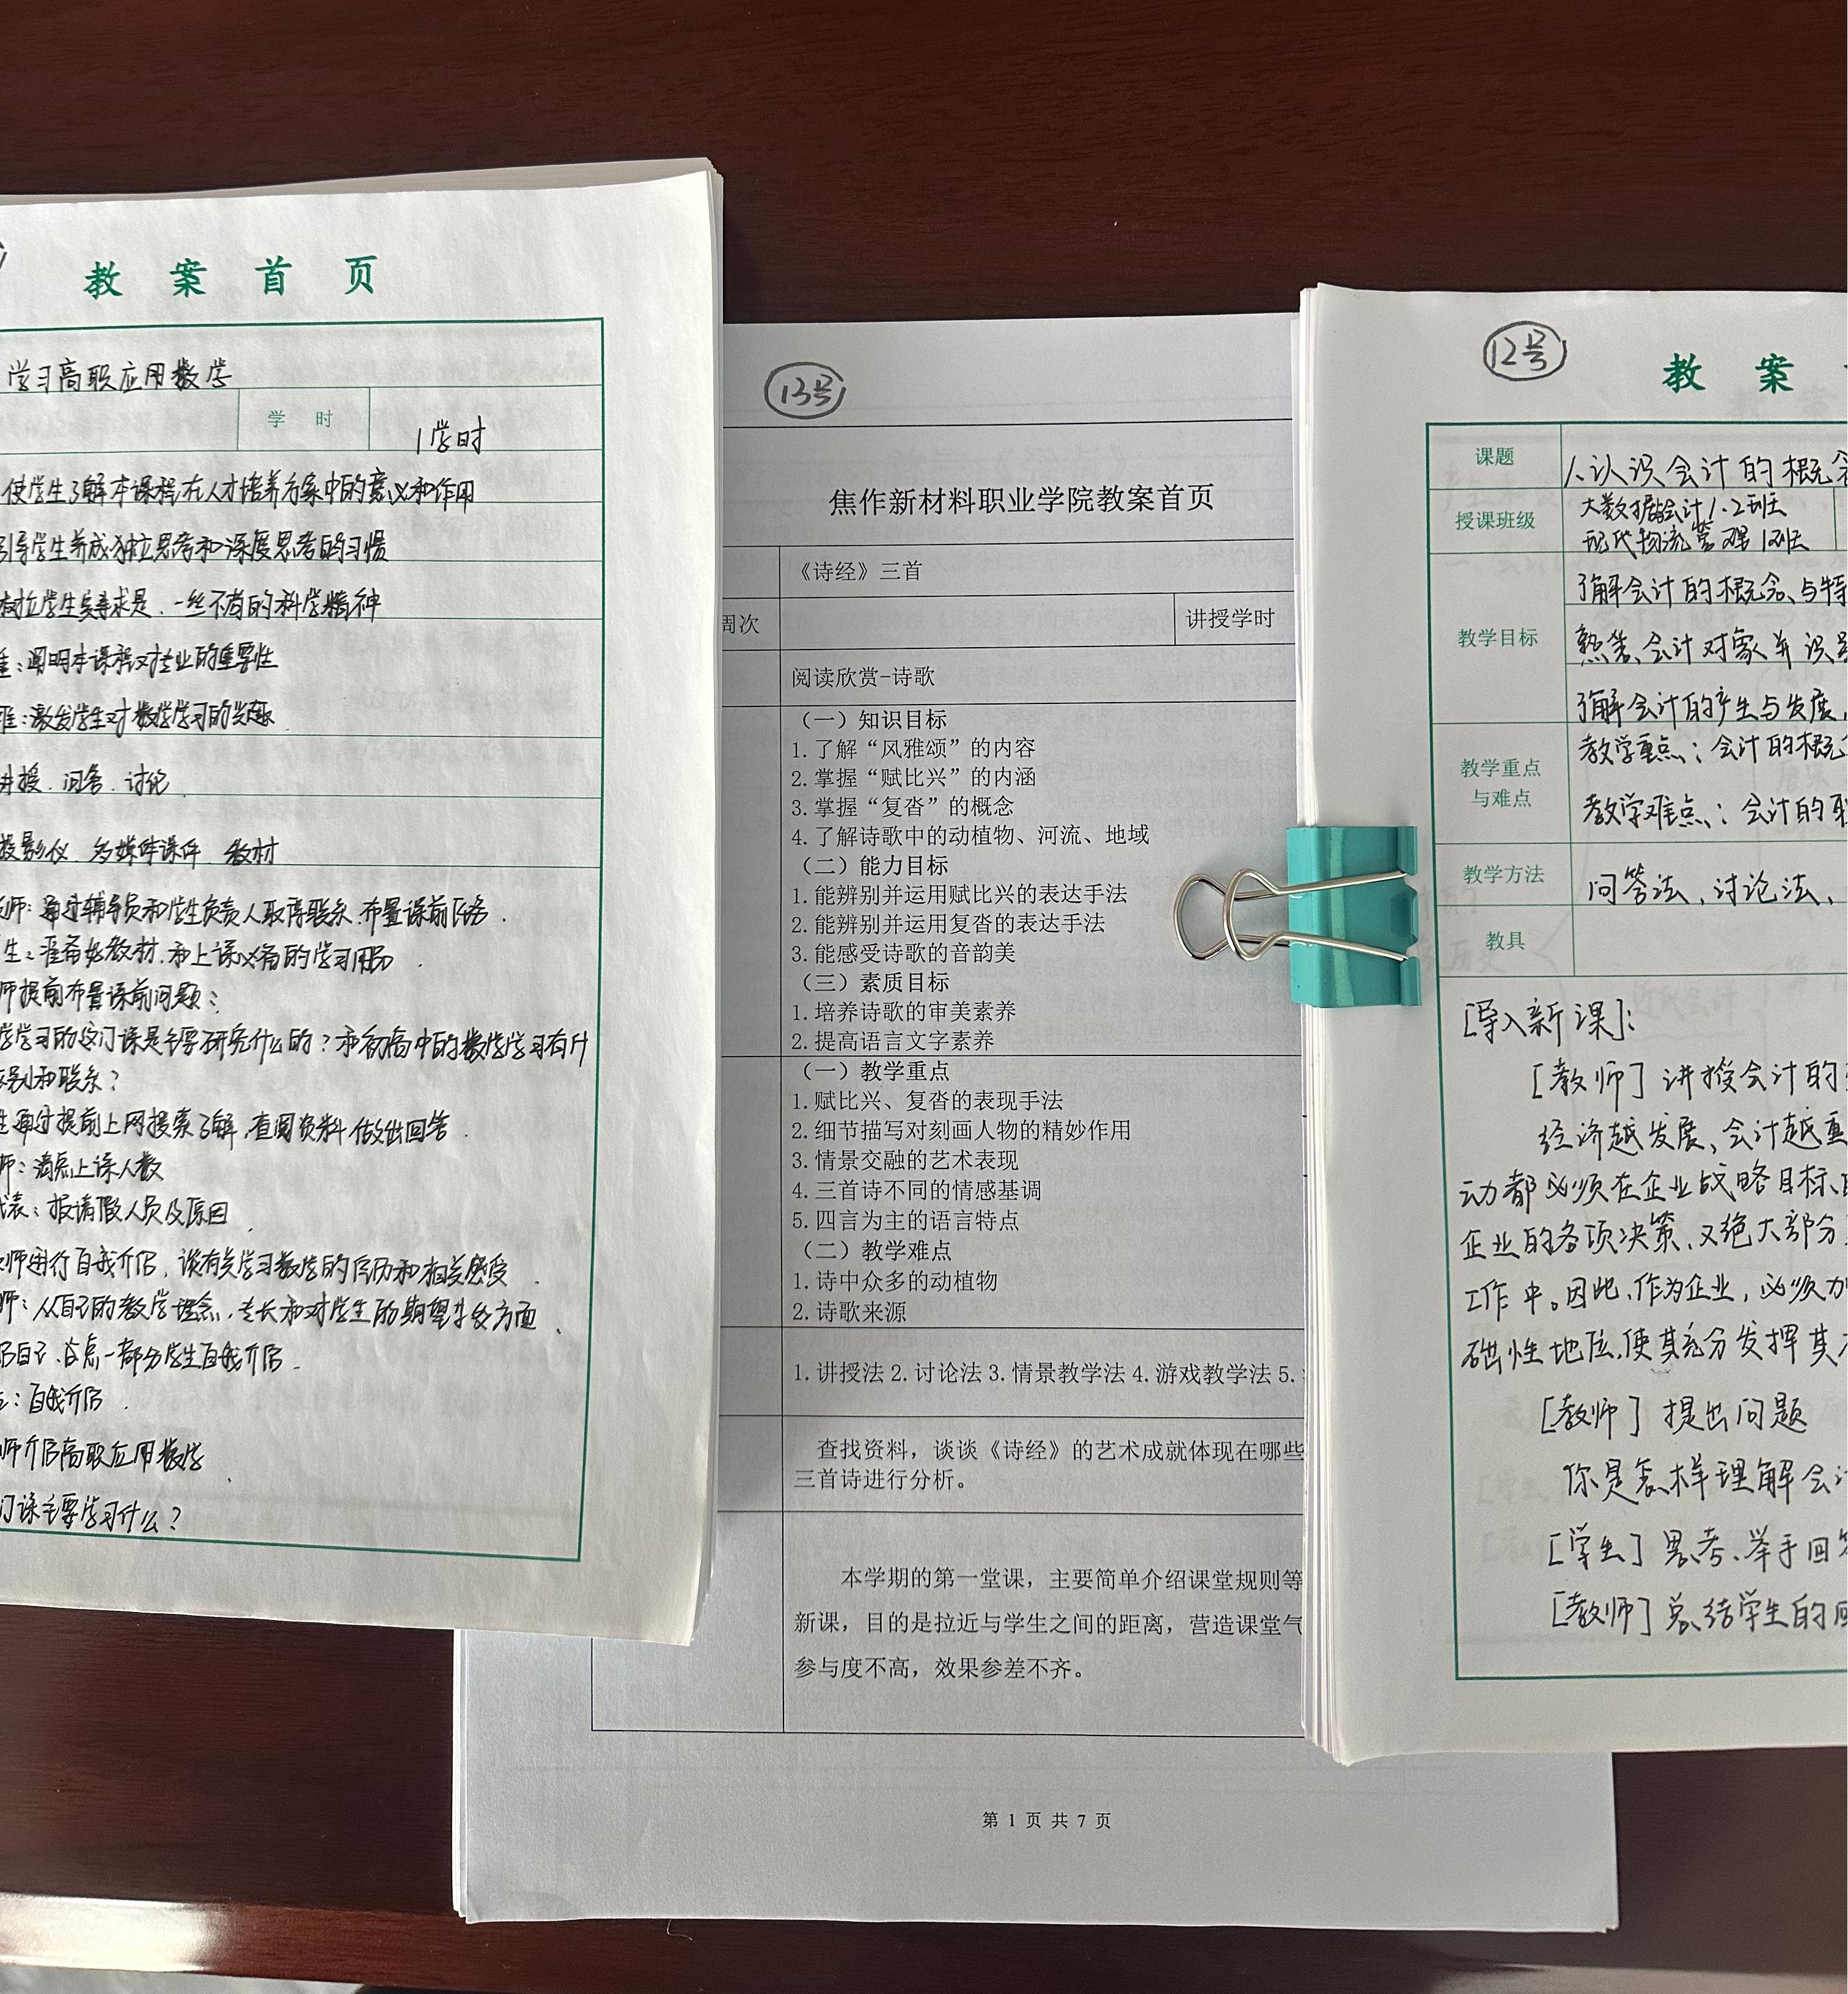 教案首页
学习高职应用数学
学时
1学时
使学生了解本课程在人才培养方案中的意义和作用
引导学生养成独立思考和深度思考的习惯
树立学生实事求是、一丝不苟的科学精神
阐明本课程对专业的重要性
激发学生对数学学习的兴趣
讲授、问答、讨论
投影仪 多媒体课件 教材
师:通过辅导员和学生负责人取得联系,布置课前任务.
生:准备好教材,和上课必备的学习用品.
师提前布置课前问题:
学学习的这门课是主要研究什么的?和初高中的数学学习有什
区别和联系?
通过提前上网搜索了解,查阅资料做出回答.
师:清点上课人数
表:报请假人员及原因
师进行自我介绍,谈有关学习数学的经历和相关感受.
师:从自己的教学理念,专长和对学生的期望等多方面
绍自己,点一部分学生自我介绍.
:自我介绍.
师介绍高职应用数学.
门课主要学习什么?
13号
焦作新材料职业学院教案首页
《诗经》三首
周次
讲授学时
阅读欣赏-诗歌
（一）知识目标
1.了解“风雅颂”的内容
2.掌握“赋比兴”的内涵
3.掌握“复沓”的概念
4.了解诗歌中的动植物、河流、地域
（二）能力目标
1.能辨别并运用赋比兴的表达手法
2.能辨别并运用复沓的表达手法
3.能感受诗歌的音韵美
（三）素质目标
1.培养诗歌的审美素养
2.提高语言文字素养
（一）教学重点
1.赋比兴、复沓的表现手法
2.细节描写对刻画人物的精妙作用
3.情景交融的艺术表现
4.三首诗不同的情感基调
5.四言为主的语言特点
（二）教学难点
1.诗中众多的动植物
2.诗歌来源
1.讲授法2.讨论法3.情景教学法4.游戏教学法5.
查找资料，谈谈《诗经》的艺术成就体现在哪些
三首诗进行分析。
本学期的第一堂课，主要简单介绍课堂规则等
新课，目的是拉近与学生之间的距离，营造课堂气
参与度不高，效果参差不齐。
第 1 页 共 7 页
12号
教案
课题
认识会计的概念
授课班级
大数据会计1、2班
现代物流管理1班
教学目标
了解会计的概念、与特
熟悉、会计对象并识
了解会计的产生与发展,
教学重点与难点
教学重点:会计的概
教学难点:会计的职
教学方法
问答法、讨论法、
教具
[导入新课]:
[教师]讲授会计的
经济越发展、会计越重
动都必须在企业战略目标、
企业的各项决策、又绝大部分
工作中。因此,作为企业,必须
础性地位,使其充分发挥其
[教师]提出问题
你是怎样理解会计
[学生]思考、举手回答
[教师]总结学生的回